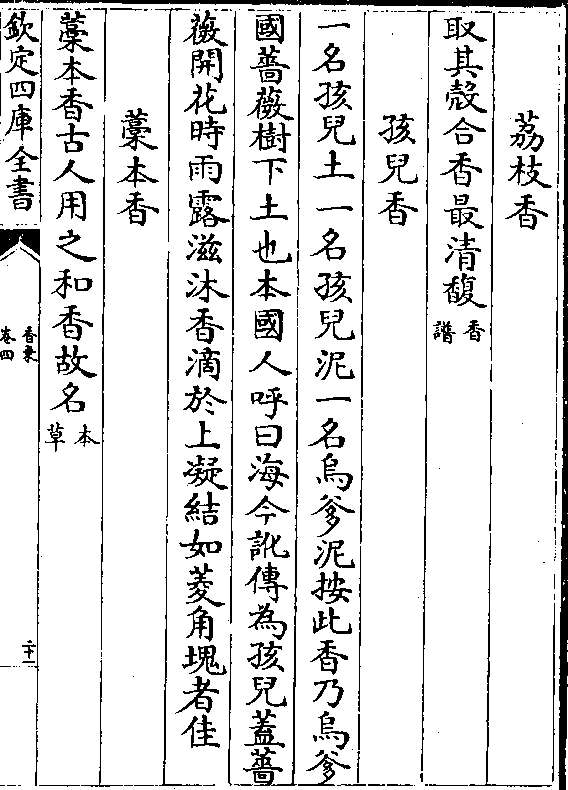 荔枝香
取其殻合香最清馥香譜
孩兒香
一名孩兒土一名孩兒泥一名烏爹泥按此香乃烏爹
國薔薇樹下土也本國人呼曰海今訛傳為孩兒蓋薔
薇開花時雨露滋沐香滴於上凝結如菱角塊者佳
藁本香
藁本香古人用之和香故名本草
欽定四庫全書
香乗
卷四
二十一